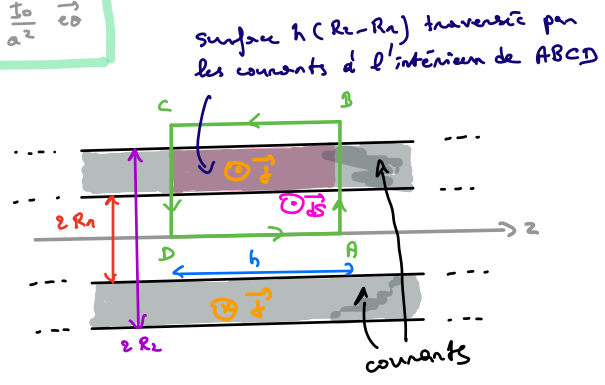 I₀
a² e⃗θ
surface h (R₂-R₁) traversée par
les courants à l'intérieur de ABCD
C
B
j⃗
dS⃗
2 R₁
z
D
A
h
j⃗
2 R₂
courants